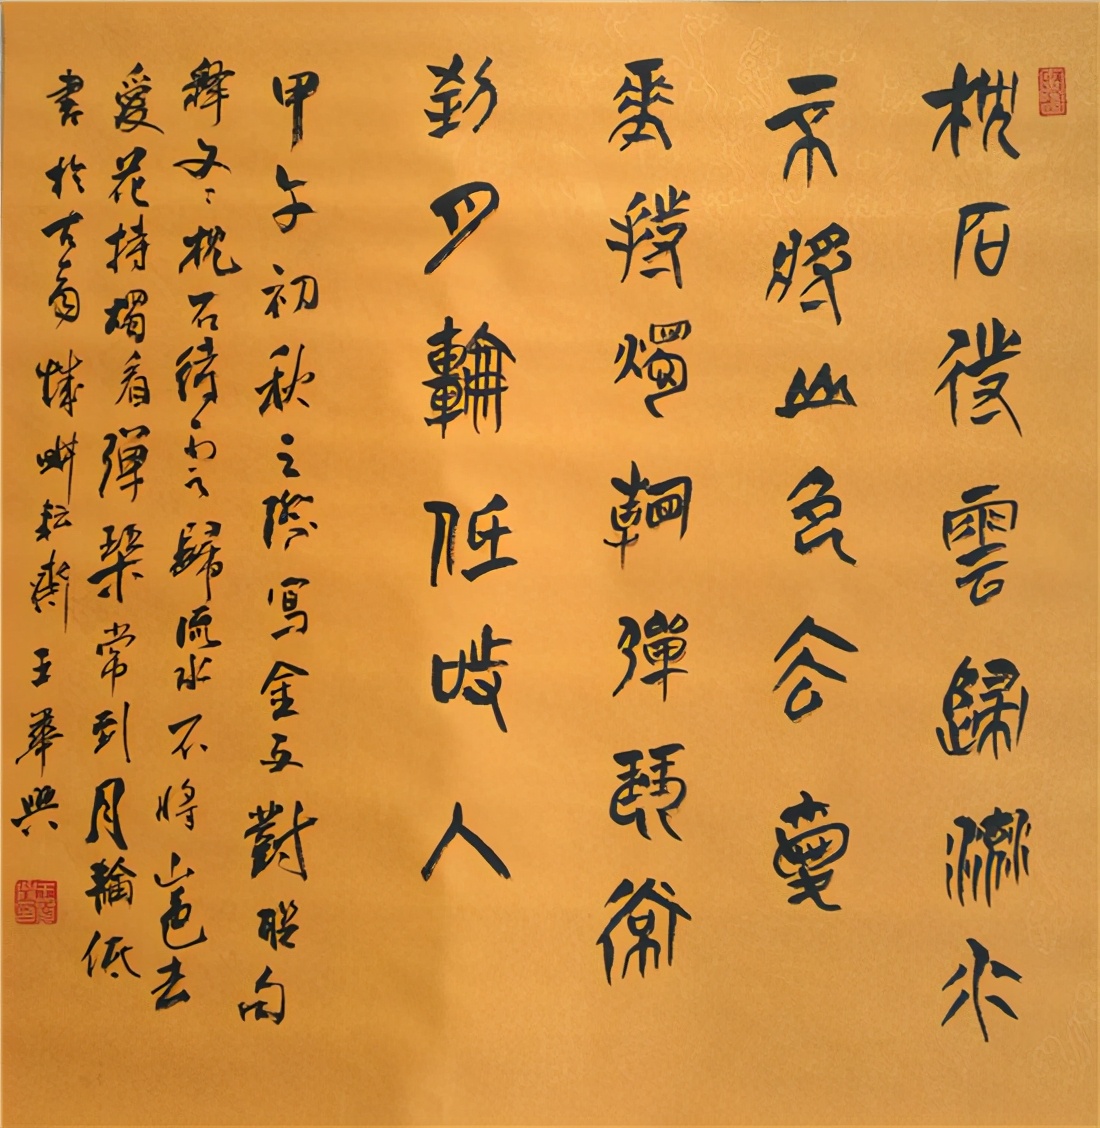 枕石待雲歸流水
不將山色去愛
花持燭看彈琴常
到月輪低人
甲午初秋之際寫金文對聯句
釋文：枕石待雲歸流水不將山色去
愛花持燭看彈琴常到月輪低
書於古商城畊耘齋王華興